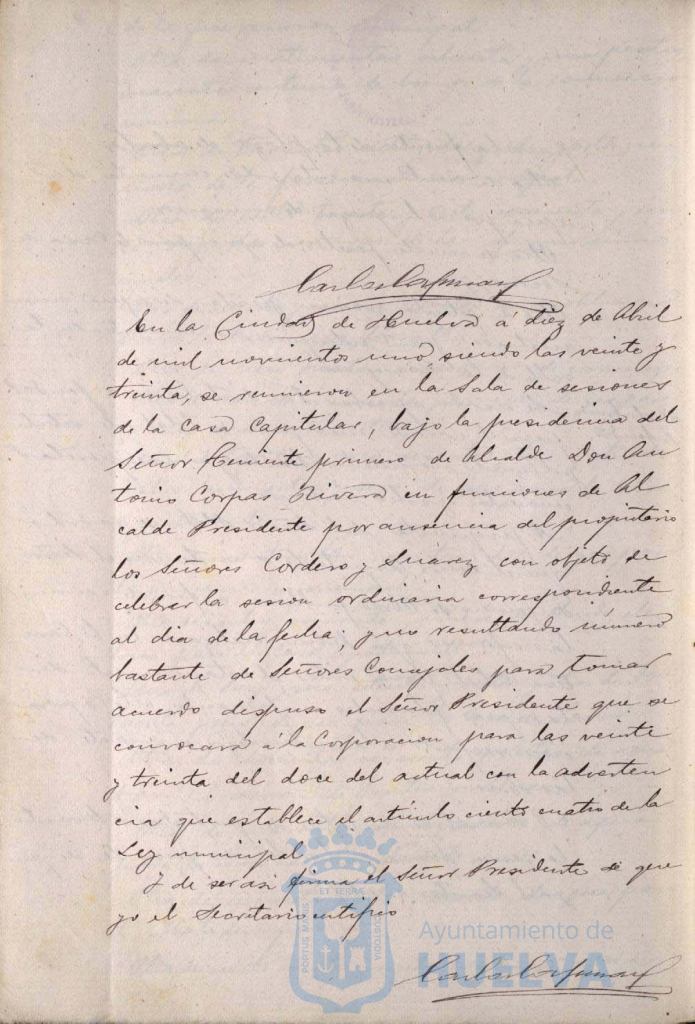 En la Ciudad de Huelva á diez de Abril
de mil novecientos uno, siendo las veinte y
treinta, se reunieron en la Sala de sesiones
de la Casa Capitular, bajo la presidencia del
Señor Teniente primero de Alcalde Don An
tonio Corpas Rivera en funciones de Al
calde Presidente por ausencia del propietario
los Señores Cordero y Suárez con objeto de
celebrar la sesion ordinaria correspondiente
al dia de la fecha; y no resultando número
bastante de Señores Concejales para tomar
acuerdo dispuso el Señor Presidente que se
convocara á la Corporacion para las veinte
y treinta del doce del actual con la adverten
cia que establece el artículo ciento cuatro de la
Ley municipal
Y de ser asi firma el Señor Presidente de que
yo el Secretario certifico
PORTUS MARIS ET TERRÆ CUSTODIA
Ayuntamiento de
HUELVA